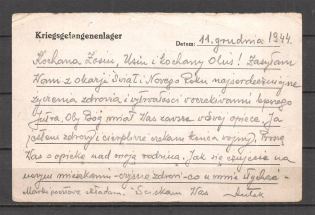 Kriegsgefangenenlager
Datum: 11. grudnia 1944.
Kochana Zosiu, Usiu i kochany Olus! Zasyłam
Wam z okazji Świąt i Nowego Roku najserdeczniejsze
życzenia zdrowia i wytrwałości w oczekiwaniu lepszego
jutra. Oby Bóg miał Was zawsze w swej opiece. Ja
jestem zdrowy i cierpliwie czekam końca wojny. Proszę
Was o opiekę nad moją rodziną. Jak się czujecie na
nowym mieszkaniu - czyście zdrowi - co u mnie słychać -
Was